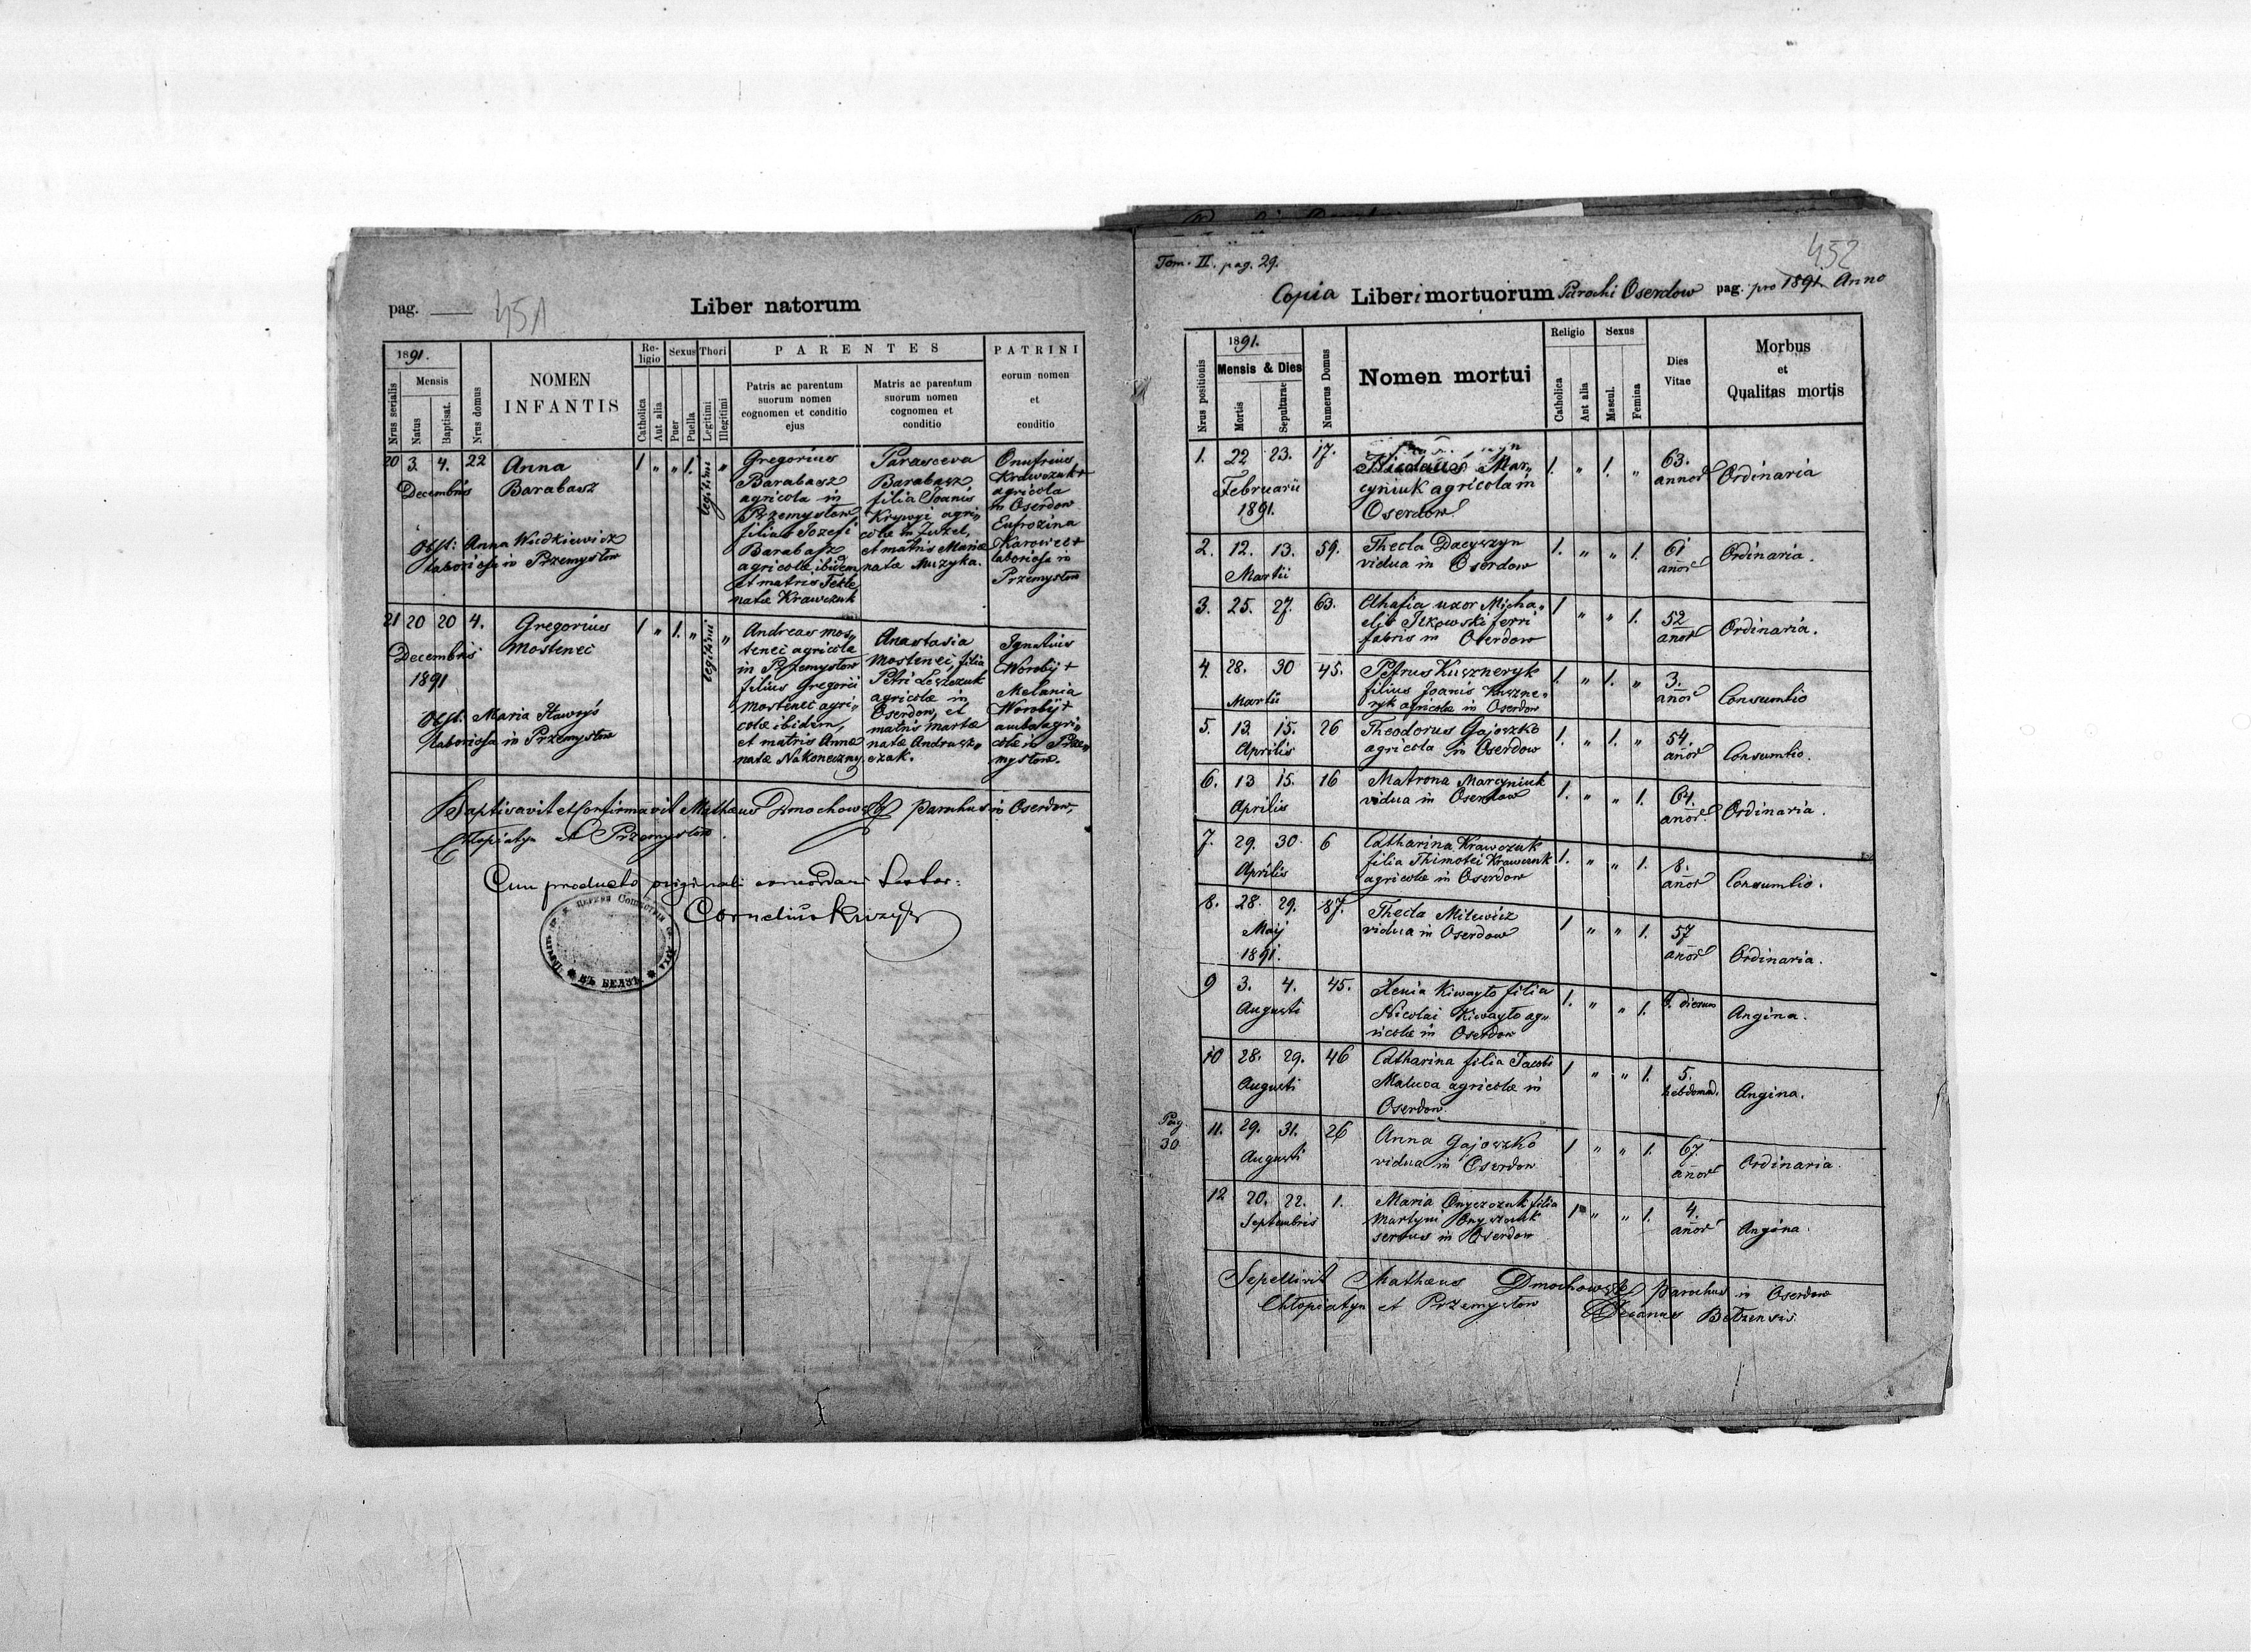 pag.
451
Liber natorum
1891.
Mensis
Nrus serialis
Natus
Baptisat.
Nrus domus
NOMEN
INFANTIS
Re-
ligio
Catholica
Aut alia
Sexus
Puer
Puella
Thori
Legitimi
Illegitimi
PARENTES
Patris ac parentum
suorum nomen
cognomen et conditio
ejus
Matris ac parentum
suorum nomen
cognomen et
conditio
PATRINI
eorum nomen
et
conditio
20 3. 4. 22
Decembris
Anna
Barabasz
1 „ „ 1. legitimi „
Obst: Anna
laboriosa in Przemysłow
Gregorius
Barabasz
agricola in
Przemysłow
filius Josefi
Barabasz
agricolæ ibidem
et matris Teklæ
natæ Krawczuk
Parasceva
Barabasz
filia Joanis
Krywyi agri„
colæ in Zuzel,
et matris Mariæ
natæ Muzyka.
Onufrius
Krawczuk +
agricola
in Oserdow
Eufrozina
Karowec +
laboriosa in
Przemysłow
21 20 20 4.
Decembris
1891
Gregorius
Mostenec
1 „ 1. „ legitimi „
Obst. Maria Hawryś
laboriosa in Przemysłow
Andreas Mos„
tenec agricola
in Przemysłow
filius Gregorii
Mostenec agri„
colæ ibidem,
et matris Annæ
natæ Nakoneczny
Anastasia
Mostenec, filia
Petri Leszczuk
agricolæ in
Oserdow, et
matris Martæ
natæ Andrusz„
czak.
Ignatius
Worobij +
Melania
Worobij +
ambo agri„
colæ in Prze„
mysłow.
Baptisavit et Confirmavit Mathæus Dmochowski parochus in Oserdow,
Chłopiatyn et Przemysłow.
Cum producto originali concordari testor:
Cornelius
ВЪ БЕЛЗѢ
Tom. II. pag. 29.
452
Copia Liberi mortuorum Parochi Oserdow pag. pro 1891. Anno
Nrus positionis
1891.
Mensis & Dies
Mortis
Sepulturae
Numerus Domus
Nomen mortui
Religio
Catholica
Aut alia
Sexus
Mascul.
Femina
Dies
Vitae
Morbus
et
Qualitas mortis
1. 22 23. 17.
Februarii
1891.
Nicolaus Mar„
cyniuk agricola in
Oserdow
1. „ 1. „ 63. annor Ordinaria
2. 12. 13. 59.
Martii
Thecla Dacyszyn
vidua in Oserdow
1. „ „ 1. 61 anor Ordinaria.
3. 25. 27. 63.
Ahafia uxor Micha„
elis Ilkowski ferri
fabris in Oserdow
1 „ „ 1. 52 anor Ordinaria.
4. 28. 30 45.
Martii
Petrus Kuszneryk
filius Joanis Kuszne„
ryk agricolæ in Oserdow
1. „ 1. „ 3. anor Consumtio
5. 13. 15. 26
Aprilis
Theodorus Gajoszko
agricola in Oserdow
1. „ 1. „ 54. anor Consumtio.
6. 13 15. 16
Aprilis
Matrona Marcyniuk
vidua in Oserdow
1. „ „ 1. 64. anor. Ordinaria.
7. 29. 30. 6
Aprilis
Catharina Krawczuk
filia Thimotei Krawczuk
agricolæ in Oserdow
1. „ „ 1. 8. anor Consumtio.
8. 28. 29. 87.
Maij
1891.
Thecla Milewicz
vidua in Oserdow
1 „ „ 1. 57 anor Ordinaria.
9 3. 4. 45.
Augusti
Xenia Kiwayło filia
Nicolai Kiwayło ag„
ricolæ in Oserdow
1. „ „ 1. dierum Angina.
10 28. 29. 46
Augusti
Catharina filia Jacobi
Maluca agricolæ in
Oserdow
1 „ „ 1. 5. hebdomad. Angina.
Pag
30
11. 29. 31. 26
Augusti
Anna Gajoszko
vidua in Oserdow
1 „ „ 1. 67 anor Ordinaria.
12 20. 22. 1.
Septembris
Maria Onyszczuk filia
Martyni Onyszczuk
servus in Oserdow
1 „ „ 1. 4. anor Angina.
Sepellivit Mathæus Dmochowski parochus in Oserdow
Chłopiatyn et Przemysłow Decanus Bełzensis.